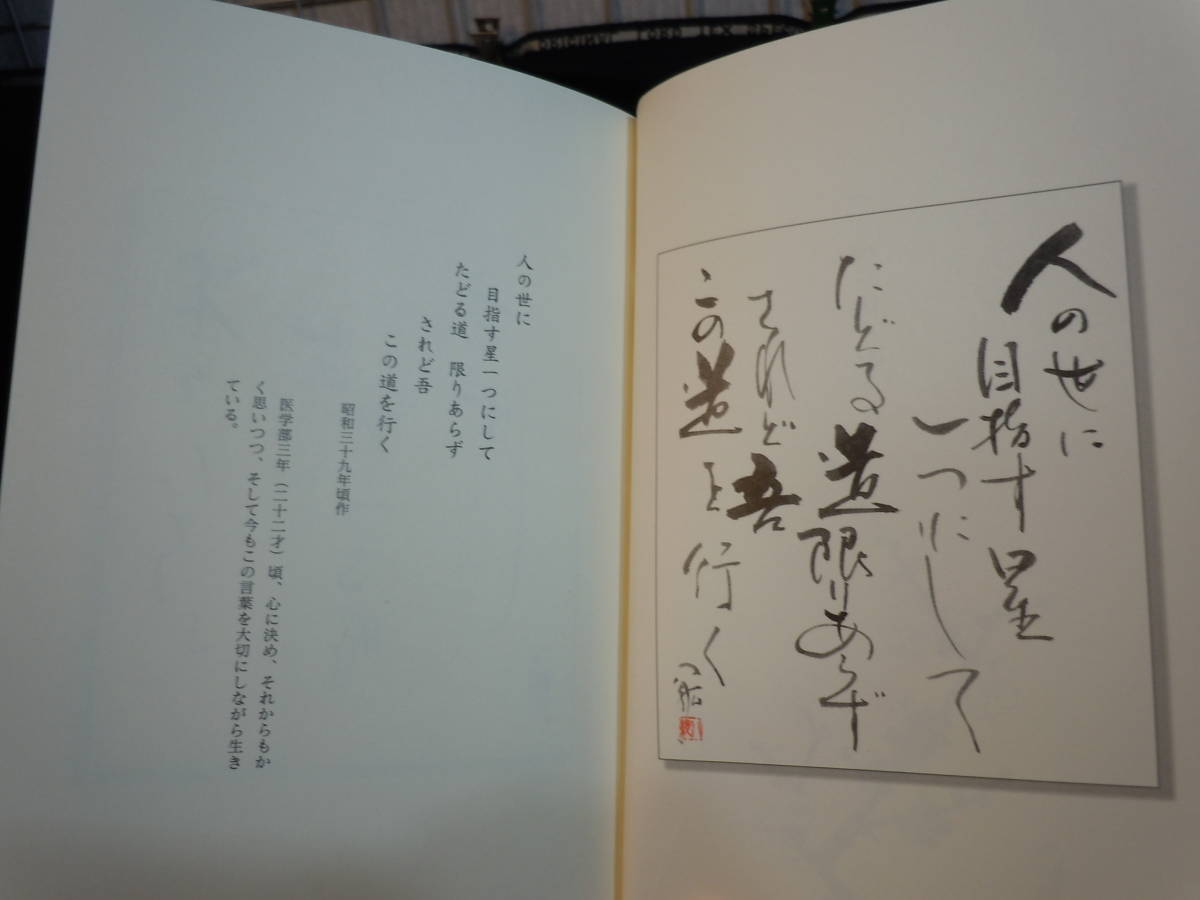 人の世に
目指す星
一つにして
たどる道限りあらず
されど吾
この道を行く
人の世に
目指す星一つにして
たどる道　限りあらず
されど吾
この道を行く
昭和三十九年頃作
医学部三年（二十二才）頃、心に決め、それからもか
く思いつつ、そして今もこの言葉を大切にしながら生き
ている。